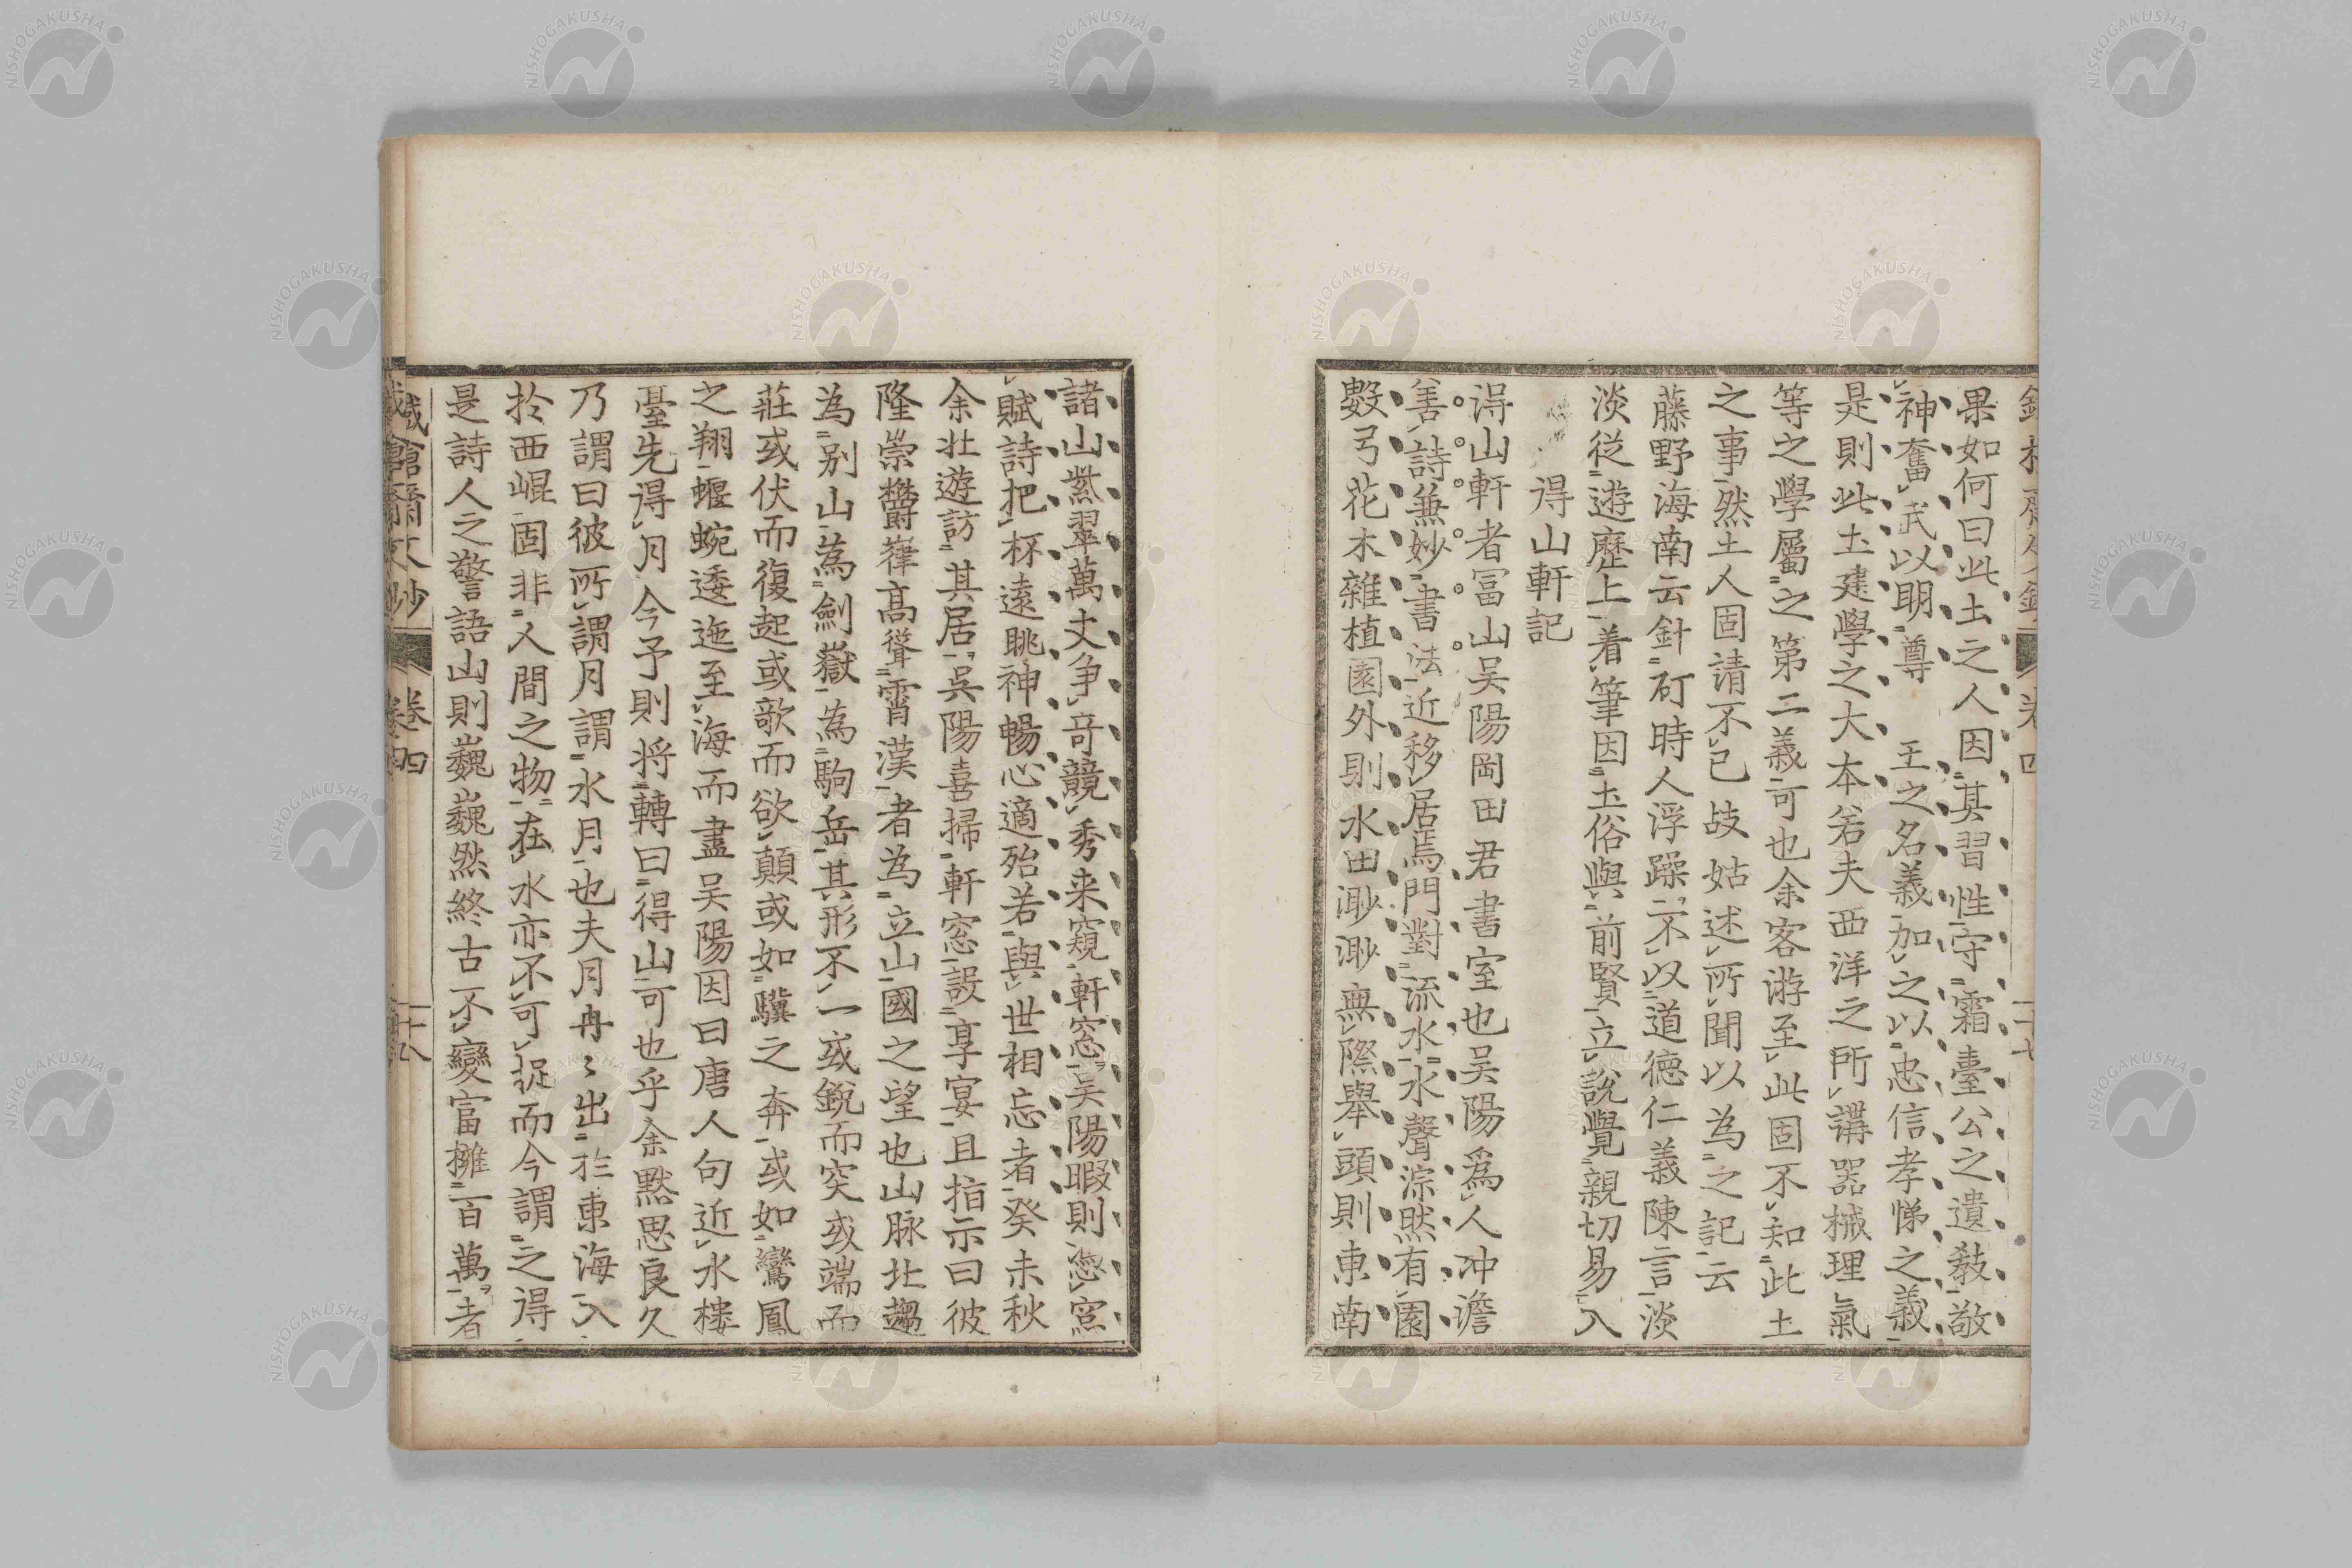 果如何曰此土之人因其習性守霜臺公之遺敎敬
神奮武以明尊　王之名義加之以忠信孝悌之義
是則此土建學之大本若夫西洋之所講器械理氣
等之學屬之第二義可也余客游至此固不知此土
之事然土人固請不已故姑述所聞以為之記云
藤野海南云針砭時人浮躁不以道德仁義陳言淡
淡從遊歷上着筆因土俗與前賢立說覺親切易入
得山軒記
得山軒者冨山吴陽岡田君書室也吴陽爲人冲澹
善詩兼妙書法近移居焉門對流水水聲淙然有園
數弓花木雜植園外則水田渺渺無際舉頭則東南
諸山紫翠萬丈争竒競秀来窺軒窓吴陽暇則凭窓
賦詩把杯遠眺神暢心適殆若與世相忘者癸未秋
余壮遊訪其居吳陽喜掃軒窓設享宴且指示曰彼
隆崇欝嵂高聳霄漢者為立山國之望也山脉北趨
為别山為劍嶽為駒岳其形不一或銳而突或端而
莊或伏而復起或欹而欲顛或如驥之奔或如鸞鳳
之翔蝘蜿逶迤至海而盡吴陽因曰唐人句近水楼
臺先得月今予則将轉曰得山可也乎余黙思良久
乃謂曰彼所謂月謂水月也夫月冉〻出於東海入
於西崐固非人間之物在水亦不可捉而今謂之得
是詩人之警語山則巍巍然終古不變富擁百萬者
卷四
十八